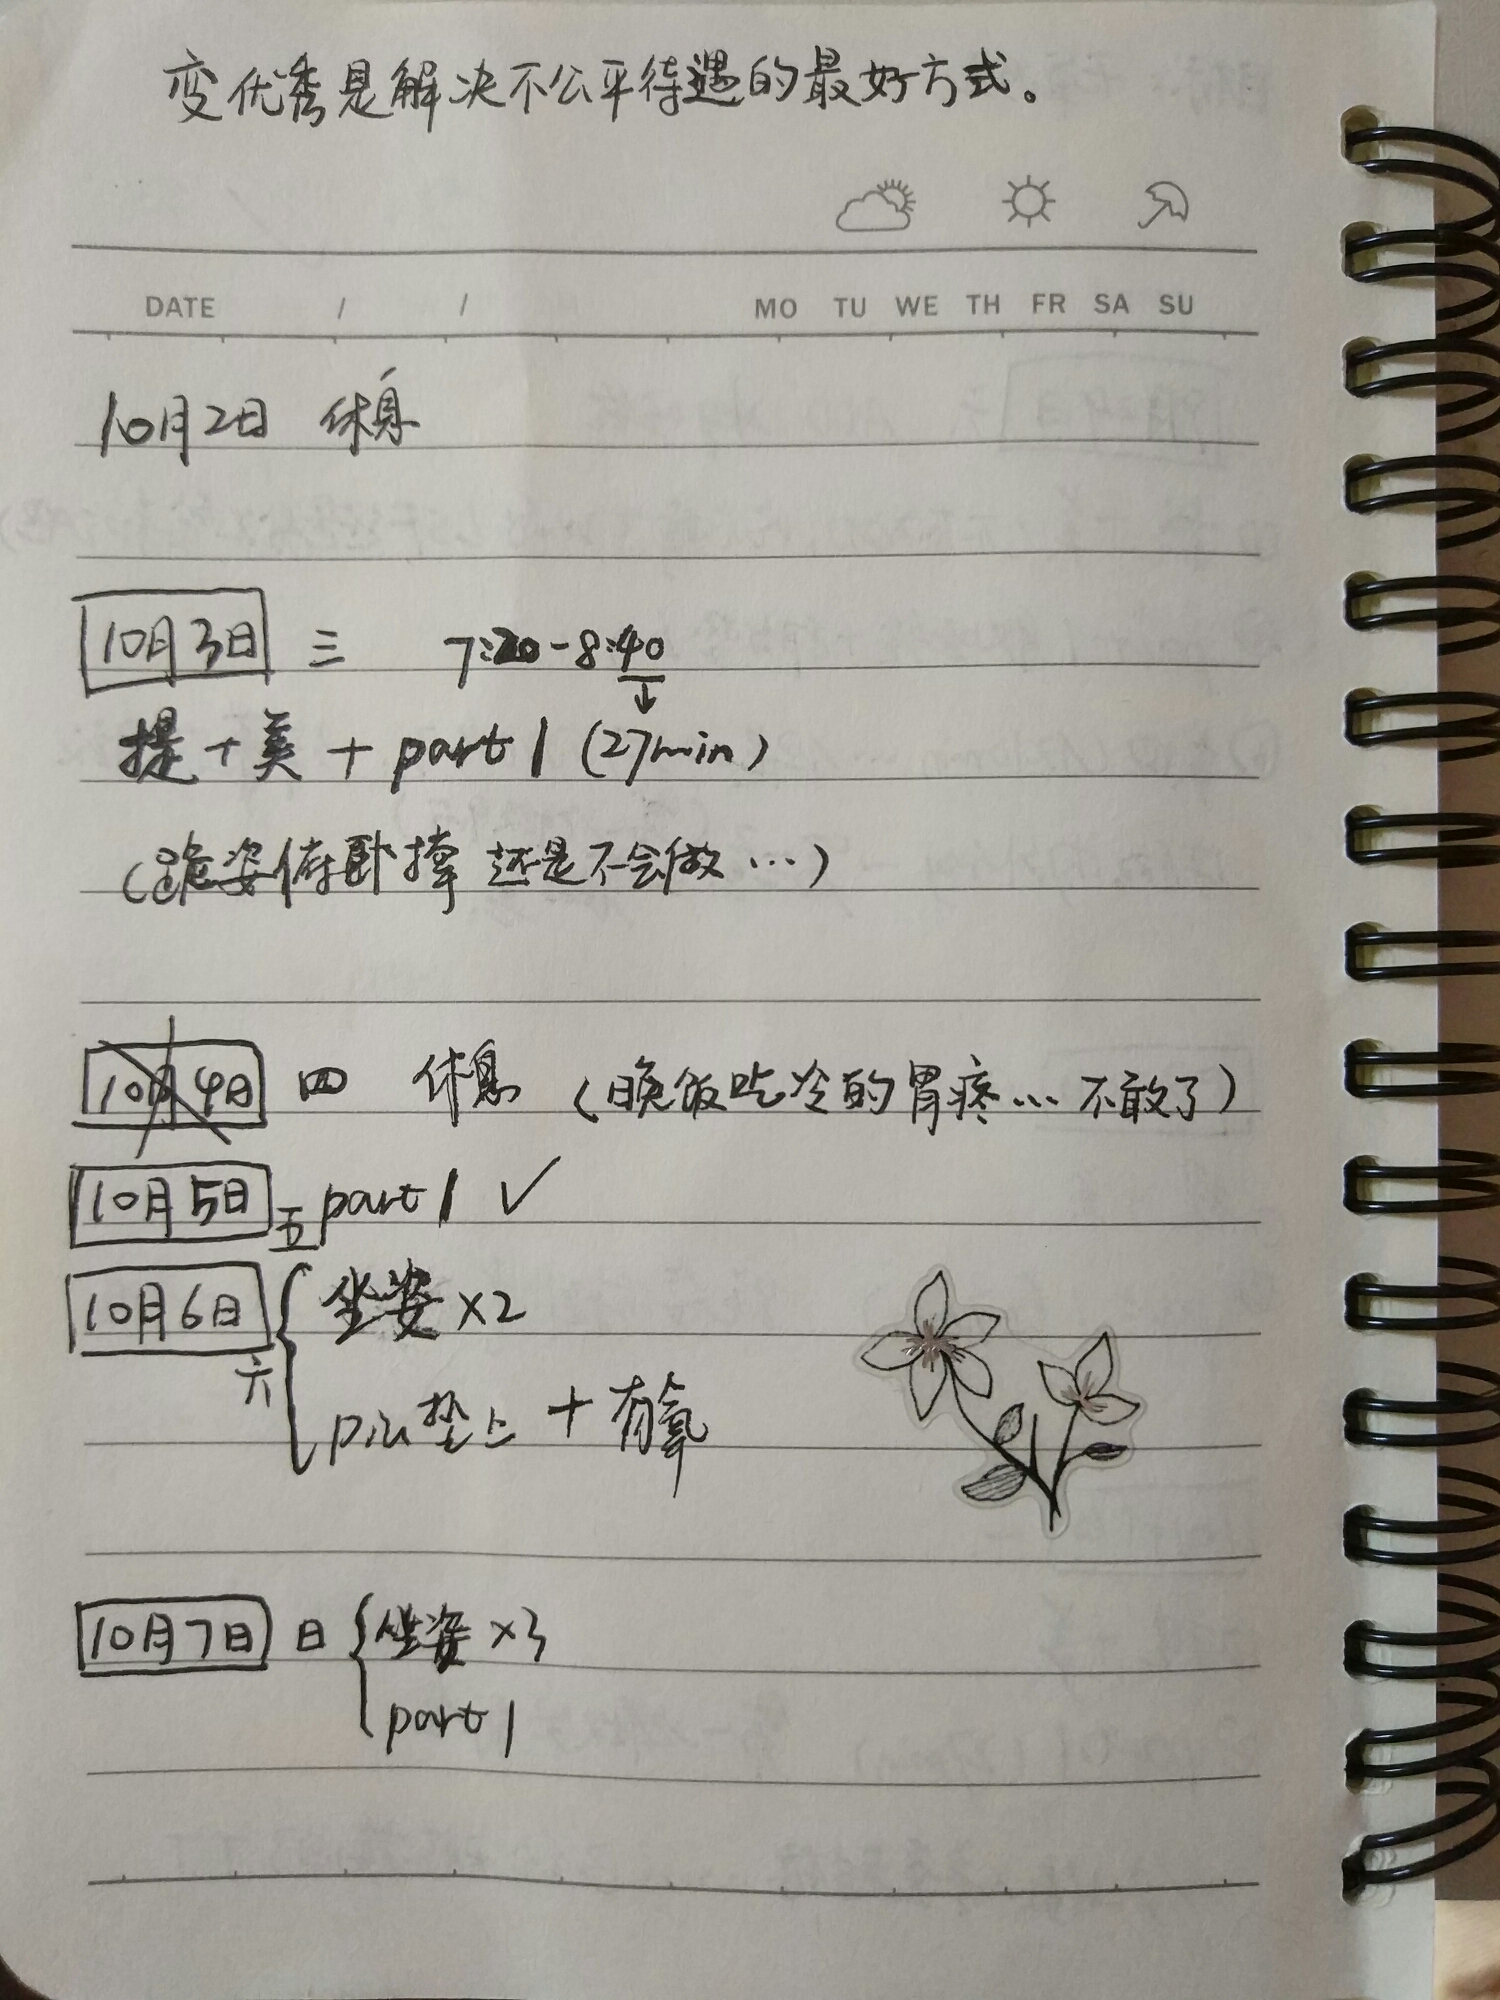 变优秀是解决不公平待遇的最好方式。
DATE / / MO TU WE TH FR SA SU
10月2日 休息
10月3日 三 7:20-8:40
↓
提+美+part1(27min)
(跪姿俯卧撑 还是不会做…)
10月4日 四 休息 (晚饭吃冷的胃疼…不敢了)
10月5日 五 part1 ✓
10月6日 六 坐姿×2
垫上+有氧
10月7日 日 坐姿×3
part1